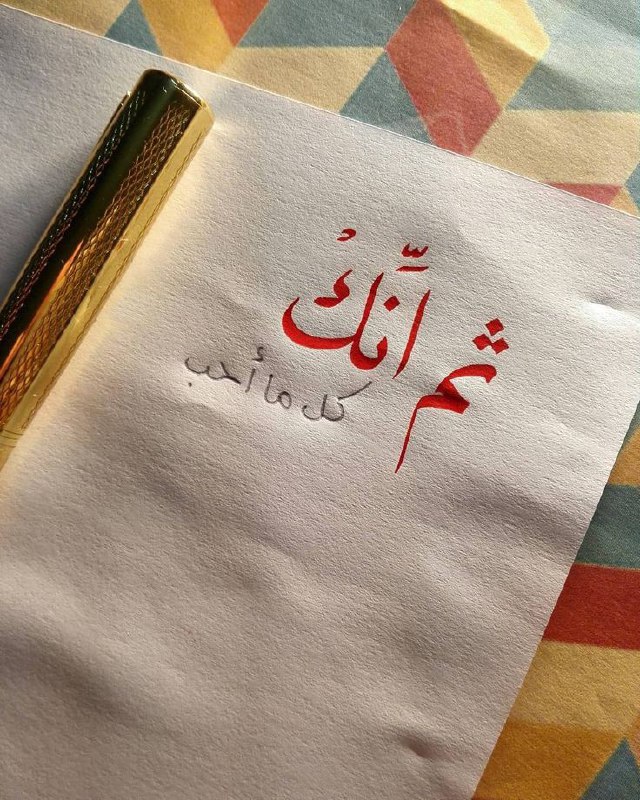 ثم انَّكْ
كل ما أحب